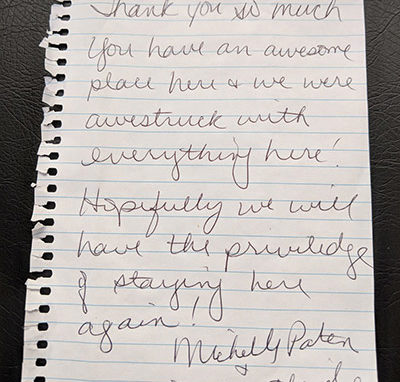 Thank you so much
You have an awesome
place here & we were
awestruck with
everything here!
Hopefully we will
have the priviledge
of staying here
again!
Paten